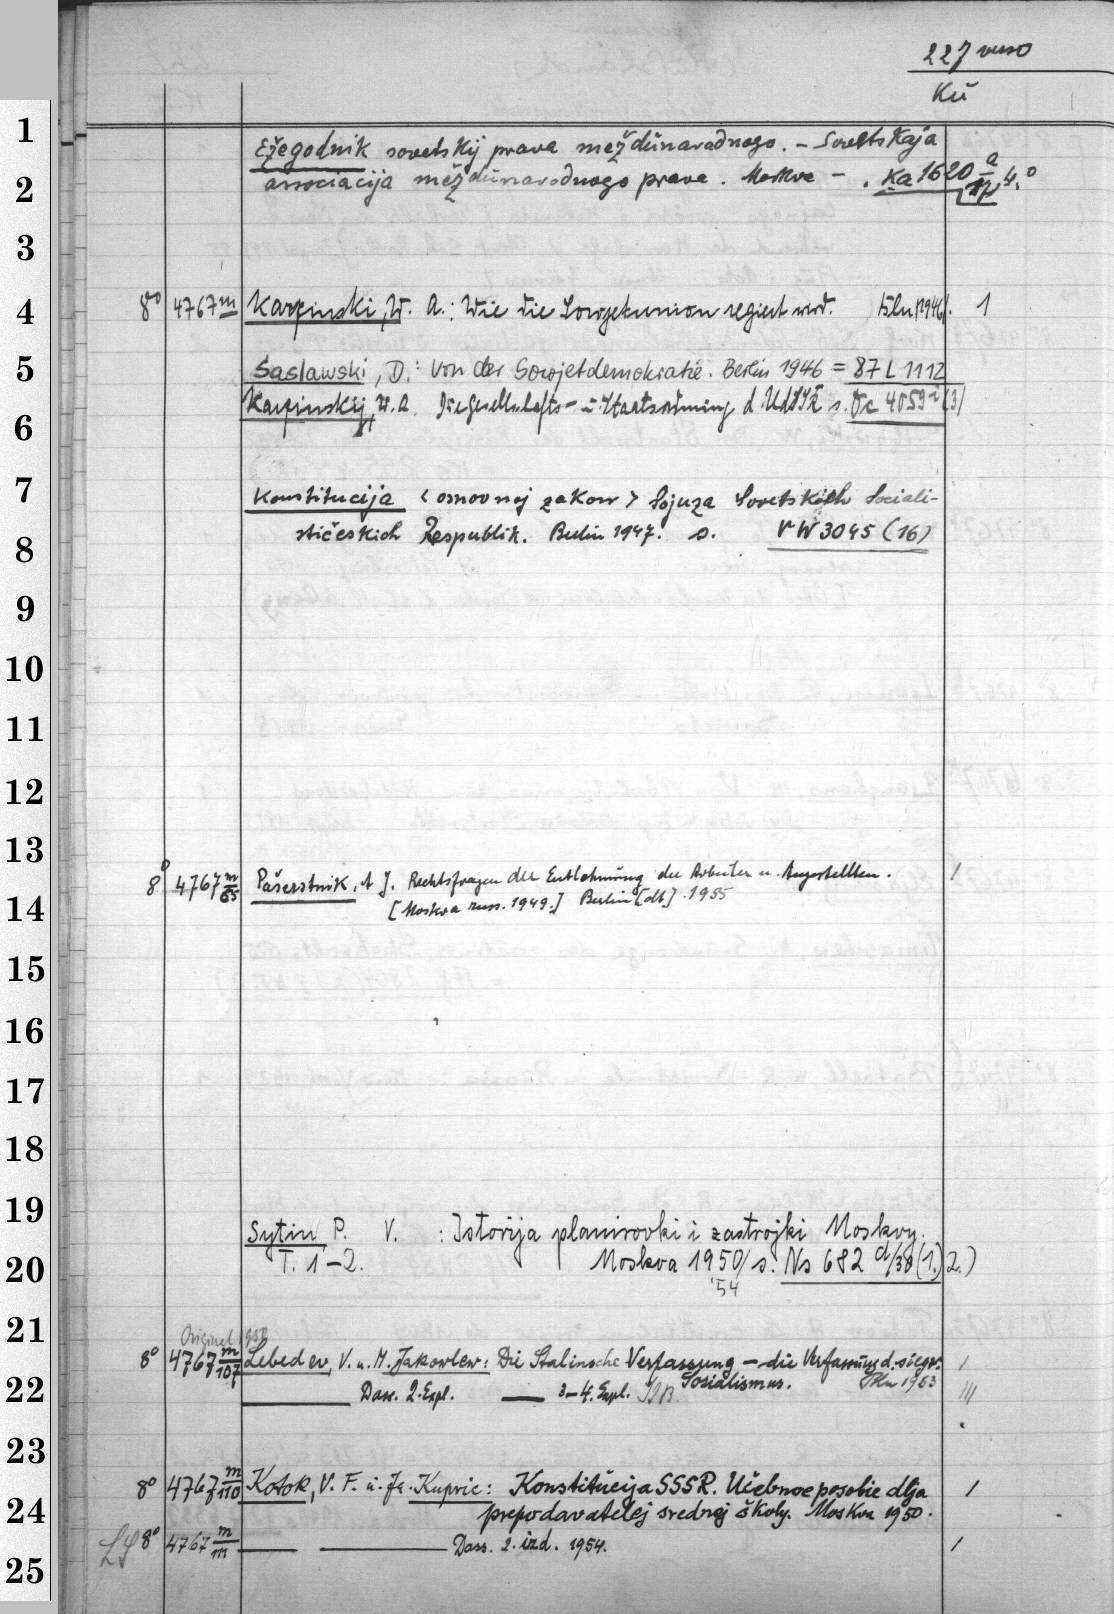 227 verso
Kü
1
Ežegodnik sovetskij prava meždunarodnogo. - Sovetskaja
2
associacija meždunarodnogo prava. Moskva - . Ka 1620 a/12, 4.°
3
4
8° 4767 m Karpinski, W. A.: Wie die Sowjetunion regiert wird. Bln 1946. 1
5
Saslawski, D.: Von der Sowjetdemokratie. Berlin 1946 = 87 L 1112
6
Karpinskij, W. A. Die Gesellschafts- u. Staatsordnung d. UdSSR s. Fc 4059 i (3)
7
Konstitucija <osnovnoj zakon> Sojuza Sovetskich Sociali-
8
stičeskich Respublik. Berlin 1947. s. VW 3045 (16)
9
10
11
12
13
14
8° 4767 m/65 Pašerstnik, A J. Rechtsfragen der Entlohnung der Arbeiter u. Angestellten. 1
[Moskva russ. 1949.] Berlin [dt.] 1955
15
16
17
18
19
Sytin P. V. : Istorija planirovki i zastrojki Moskvy.
20
T. 1-2. Moskva 1950/ s. Ns 682 d/38 (1.) 2.)
'54
21
Original 1950
8° 4767 m/107 Lebedev, V. u. M. Jakowlew: Die Stalinsche Verfassung - die Verfassung d. siegr. 1
22
Sozialismus. Bln 1953
Dass. 2. Expl. — 3-4. Expl. III
23
8° 4767 m/110 Kotok, V. F. u. Ja. Kupric: Konstitucija SSSR. Učebnoe posobie dlja 1
24
prepodavatelej srednej školy. Moskva 1950.
LS 8° 4767 m/111 — — Dass. 2. izd. 1954. 1
25